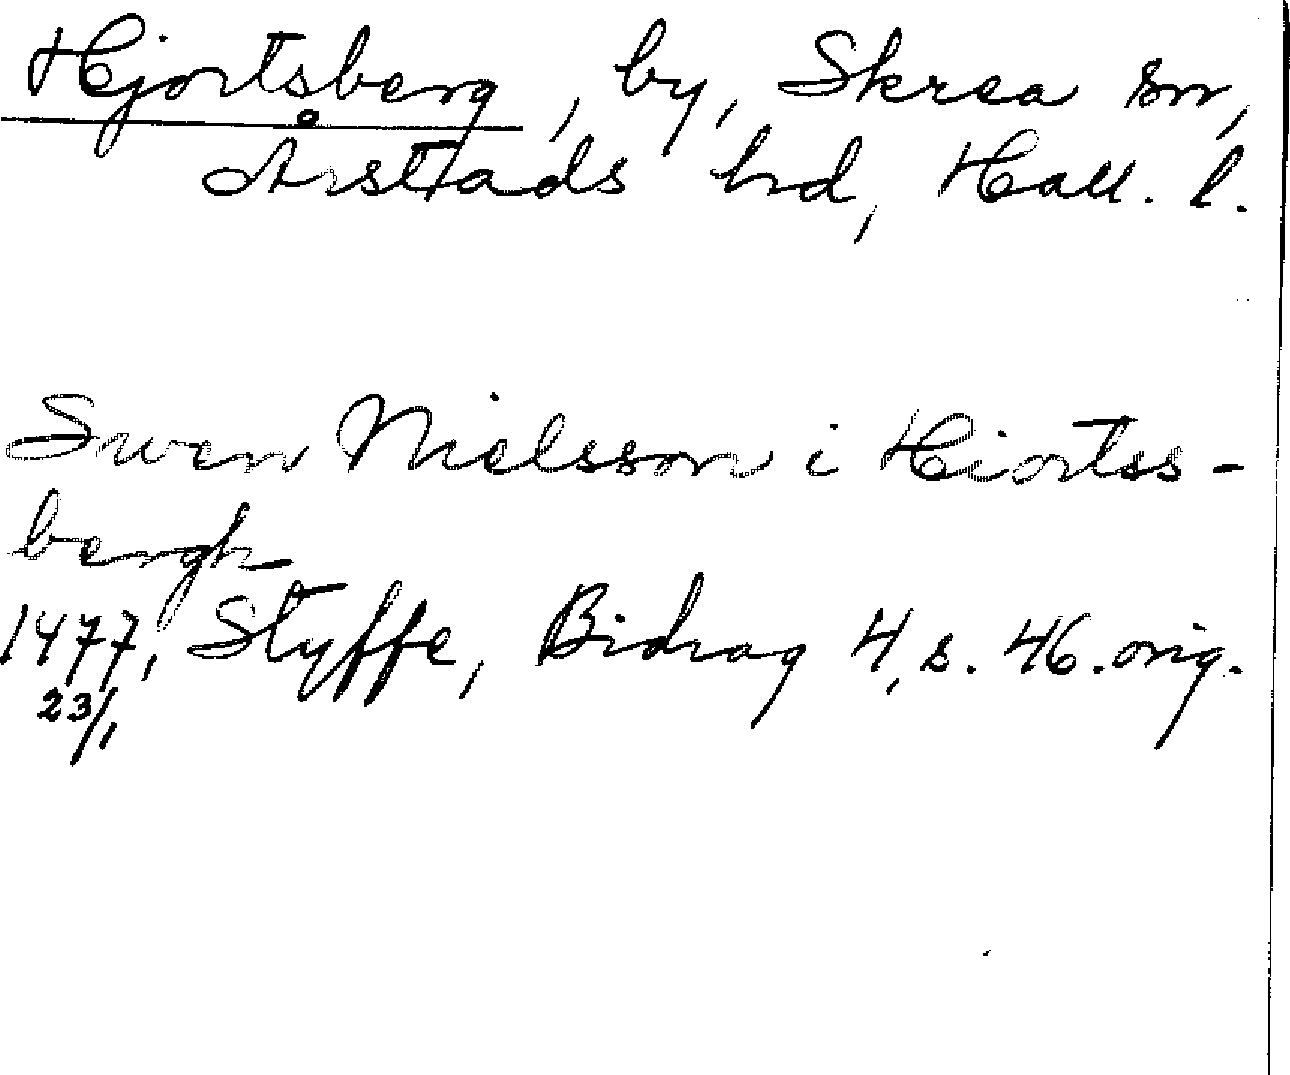 Hjortsberg, by, Skrea sn,
Årstads hd, Hall. l.
Swen Nielsson i Hiortss-
bergh
1477, Styffe, Bidrag 4, s. 46. orig.
23/1